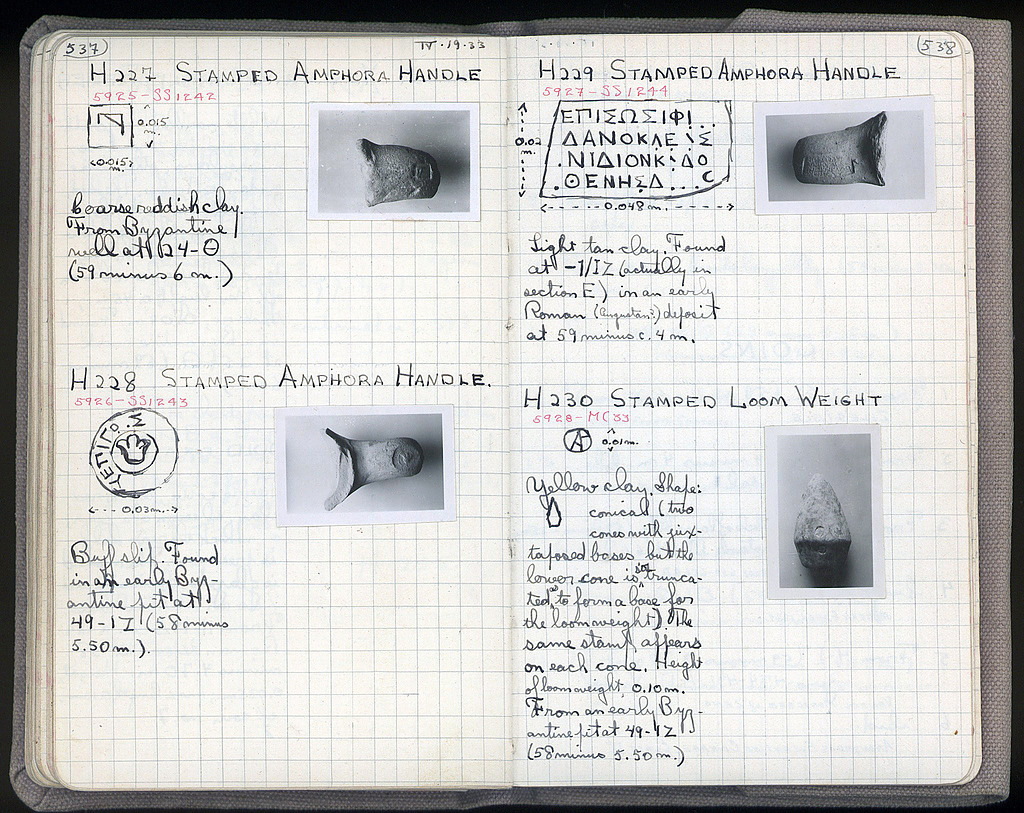 537
IV·19·33
H227 STAMPED AMPHORA HANDLE
5925-SS1242
0.015
m.
0.015
m.
Coarse reddish clay.
From Byzantine
well at 24-Θ
(59 minus 6 m.)
H228 STAMPED AMPHORA HANDLE.
5926-SS1243
0.03m.
Buff slip. Found
in an early Byz-
antine pit at
49-IZ (58 minus
5.50 m.).
538
H229 STAMPED AMPHORA HANDLE
5927-SS1244
0.02
m.
ΕΠΙΣΩΣΙΦΙ..
ΔΑΝΟΚΛΕ
.ΝΙΔΙΟΝΚ.ΔΟ
.ΘΕΝΗΣΔ...C
0.048m.
Light tan clay. Found
at -1/IZ (actually in
section E) in an early
Roman (Augustan?) deposit
at 59 minus c. 4 m.
H230 STAMPED LOOM WEIGHT
5928-MC33
0.01m.
Yellow clay. Shape:
conical (two
cones with jux-
taposed bases but the
lower cone is trunca-
ted to form a base for
the loomweight). The
same stamp appears
on each cone. Height
of loomweight 0.10m.
From an early Byz-
antine pit at 49-IZ
(58 minus 5.50m.)